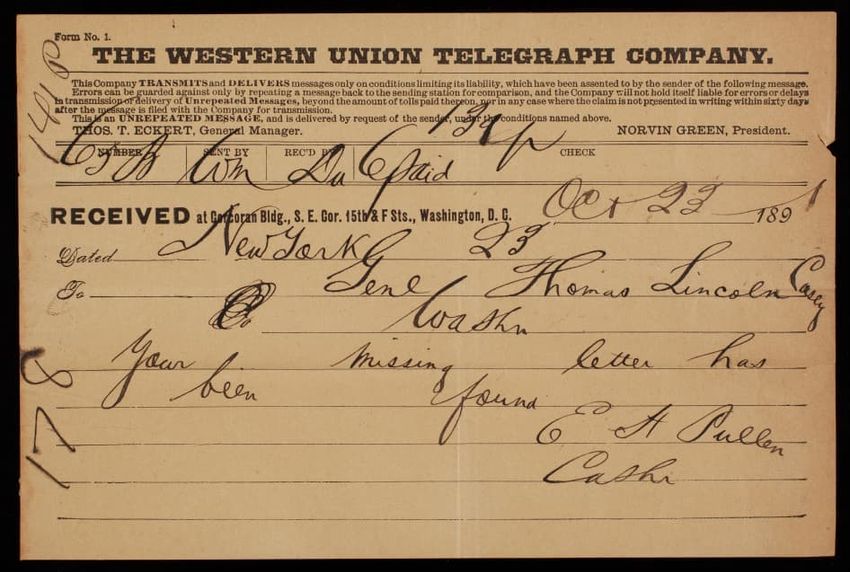 Form No. 1.
THE WESTERN UNION TELEGRAPH COMPANY.
This Company TRANSMITS and DELIVERS messages only on conditions limiting its liability, which have been assented to by the sender of the following message.
Errors can be guarded against only by repeating a message back to the sending station for comparison, and the Company will not hold itself liable for errors or delays
in transmission or delivery of Unrepeated Messages, beyond the amount of tolls paid thereon, nor in any case where the claim is not presented in writing within sixty days
after the message is filed with the Company for transmission.
This is an UNREPEATED MESSAGE, and is delivered by request of the sender, under the conditions named above.
THOS. T. ECKERT, General Manager. NORVIN GREEN, President.
NUMBER SENT BY REC'D BY CHECK
Wm Du 6 Paid
RECEIVED at Corcoran Bldg., S. E. Cor. 15th & F Sts., Washington, D. C. Oct 23 1891
Dated New York 23
To Genl Thomas Lincoln Casey
Washn
Your missing letter has
been found
E H Pullen
Cashr
178